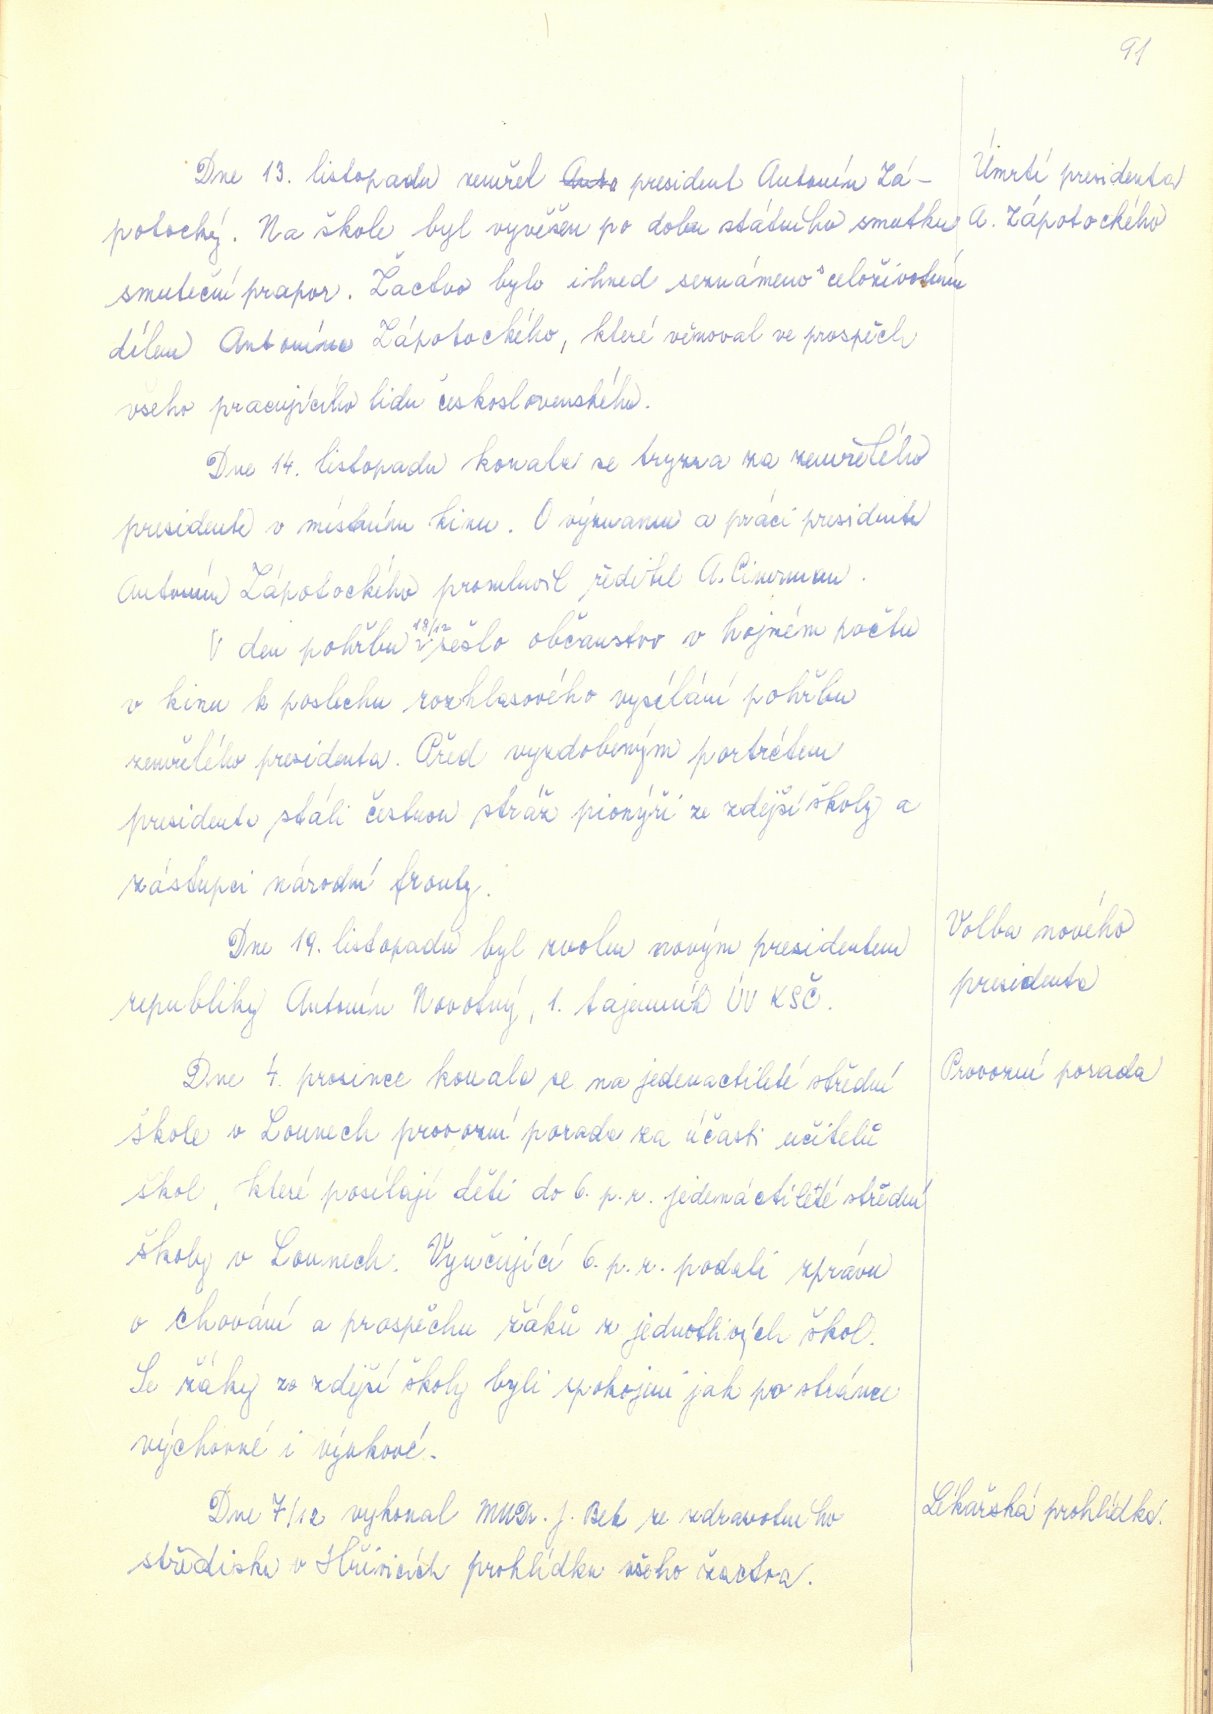 91
Dne 13. listopadu zemřel Anto president Antonín Zá-
potocký. Na škole byl vyvěšen po dobu státního smutku
smuteční prapor. Žactvo bylo ihned seznámeno s celoživotním
dílem Antonína Zápotockého, které věnoval ve prospěch
všeho pracujícího lidu československého.
Úmrtí presidenta
A. Zápotockého
Dne 14. listopadu konala se tryzna za zemřelého
presidenta v místním kinu. O významu a práci presidenta
Antonína Zápotockého promluvil ředitel A.
V den pohřbu 18/12 sešlo občanstvo v hojném počtu
v kinu k poslechu rozhlasového vysílání pohřbu
zemřelého presidenta. Před vyzdobeným portrétem
presidenta stáli čestnou stráž pionýři ze zdejší školy a
zástupci národní fronty.
Dne 19. listopadu byl zvolen novým presidentem
republiky Antonín Novotný, 1. tajemník ÚV KSČ.
Volba nového
presidenta
Dne 4. prosince konala se na jedenactileté střední
škole v Lounech provozní porada za účasti učitelů
škol, které posílají děti do 6. p. r. jedenáctileté střední
školy v Lounech. Vyučující 6. p. r. podali zprávu
o chování a prospěchu žáků z jednotlivých škol.
Se žáky ze zdejší školy byli spokojeni jak po stránce
výchovné i výukové.
Provozní porada
Dne 7/12 vykonal MUDr. J. Bek ze zdravotního
střediska v Hřivicích prohlídku všeho žactva.
Lékařská prohlídka.